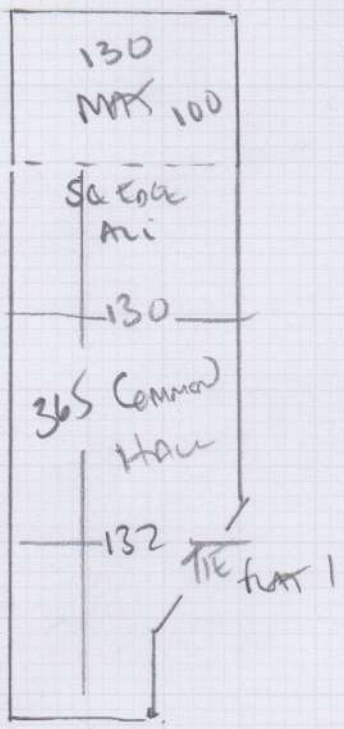 130
MAT 100
SQ EDGE
ALi
130
365 Common
HALL
132
T/E FLAT 1